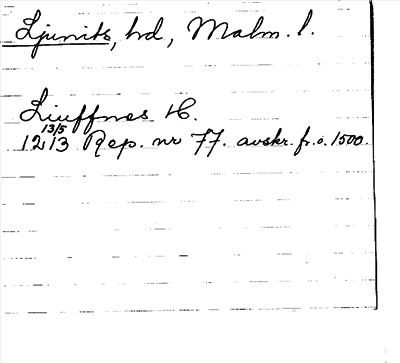 Ljunits, hd, Malm. l.
Liuffnes H.
13/5
1213 Rep. nr 77. avskr. fr. o. 1500.